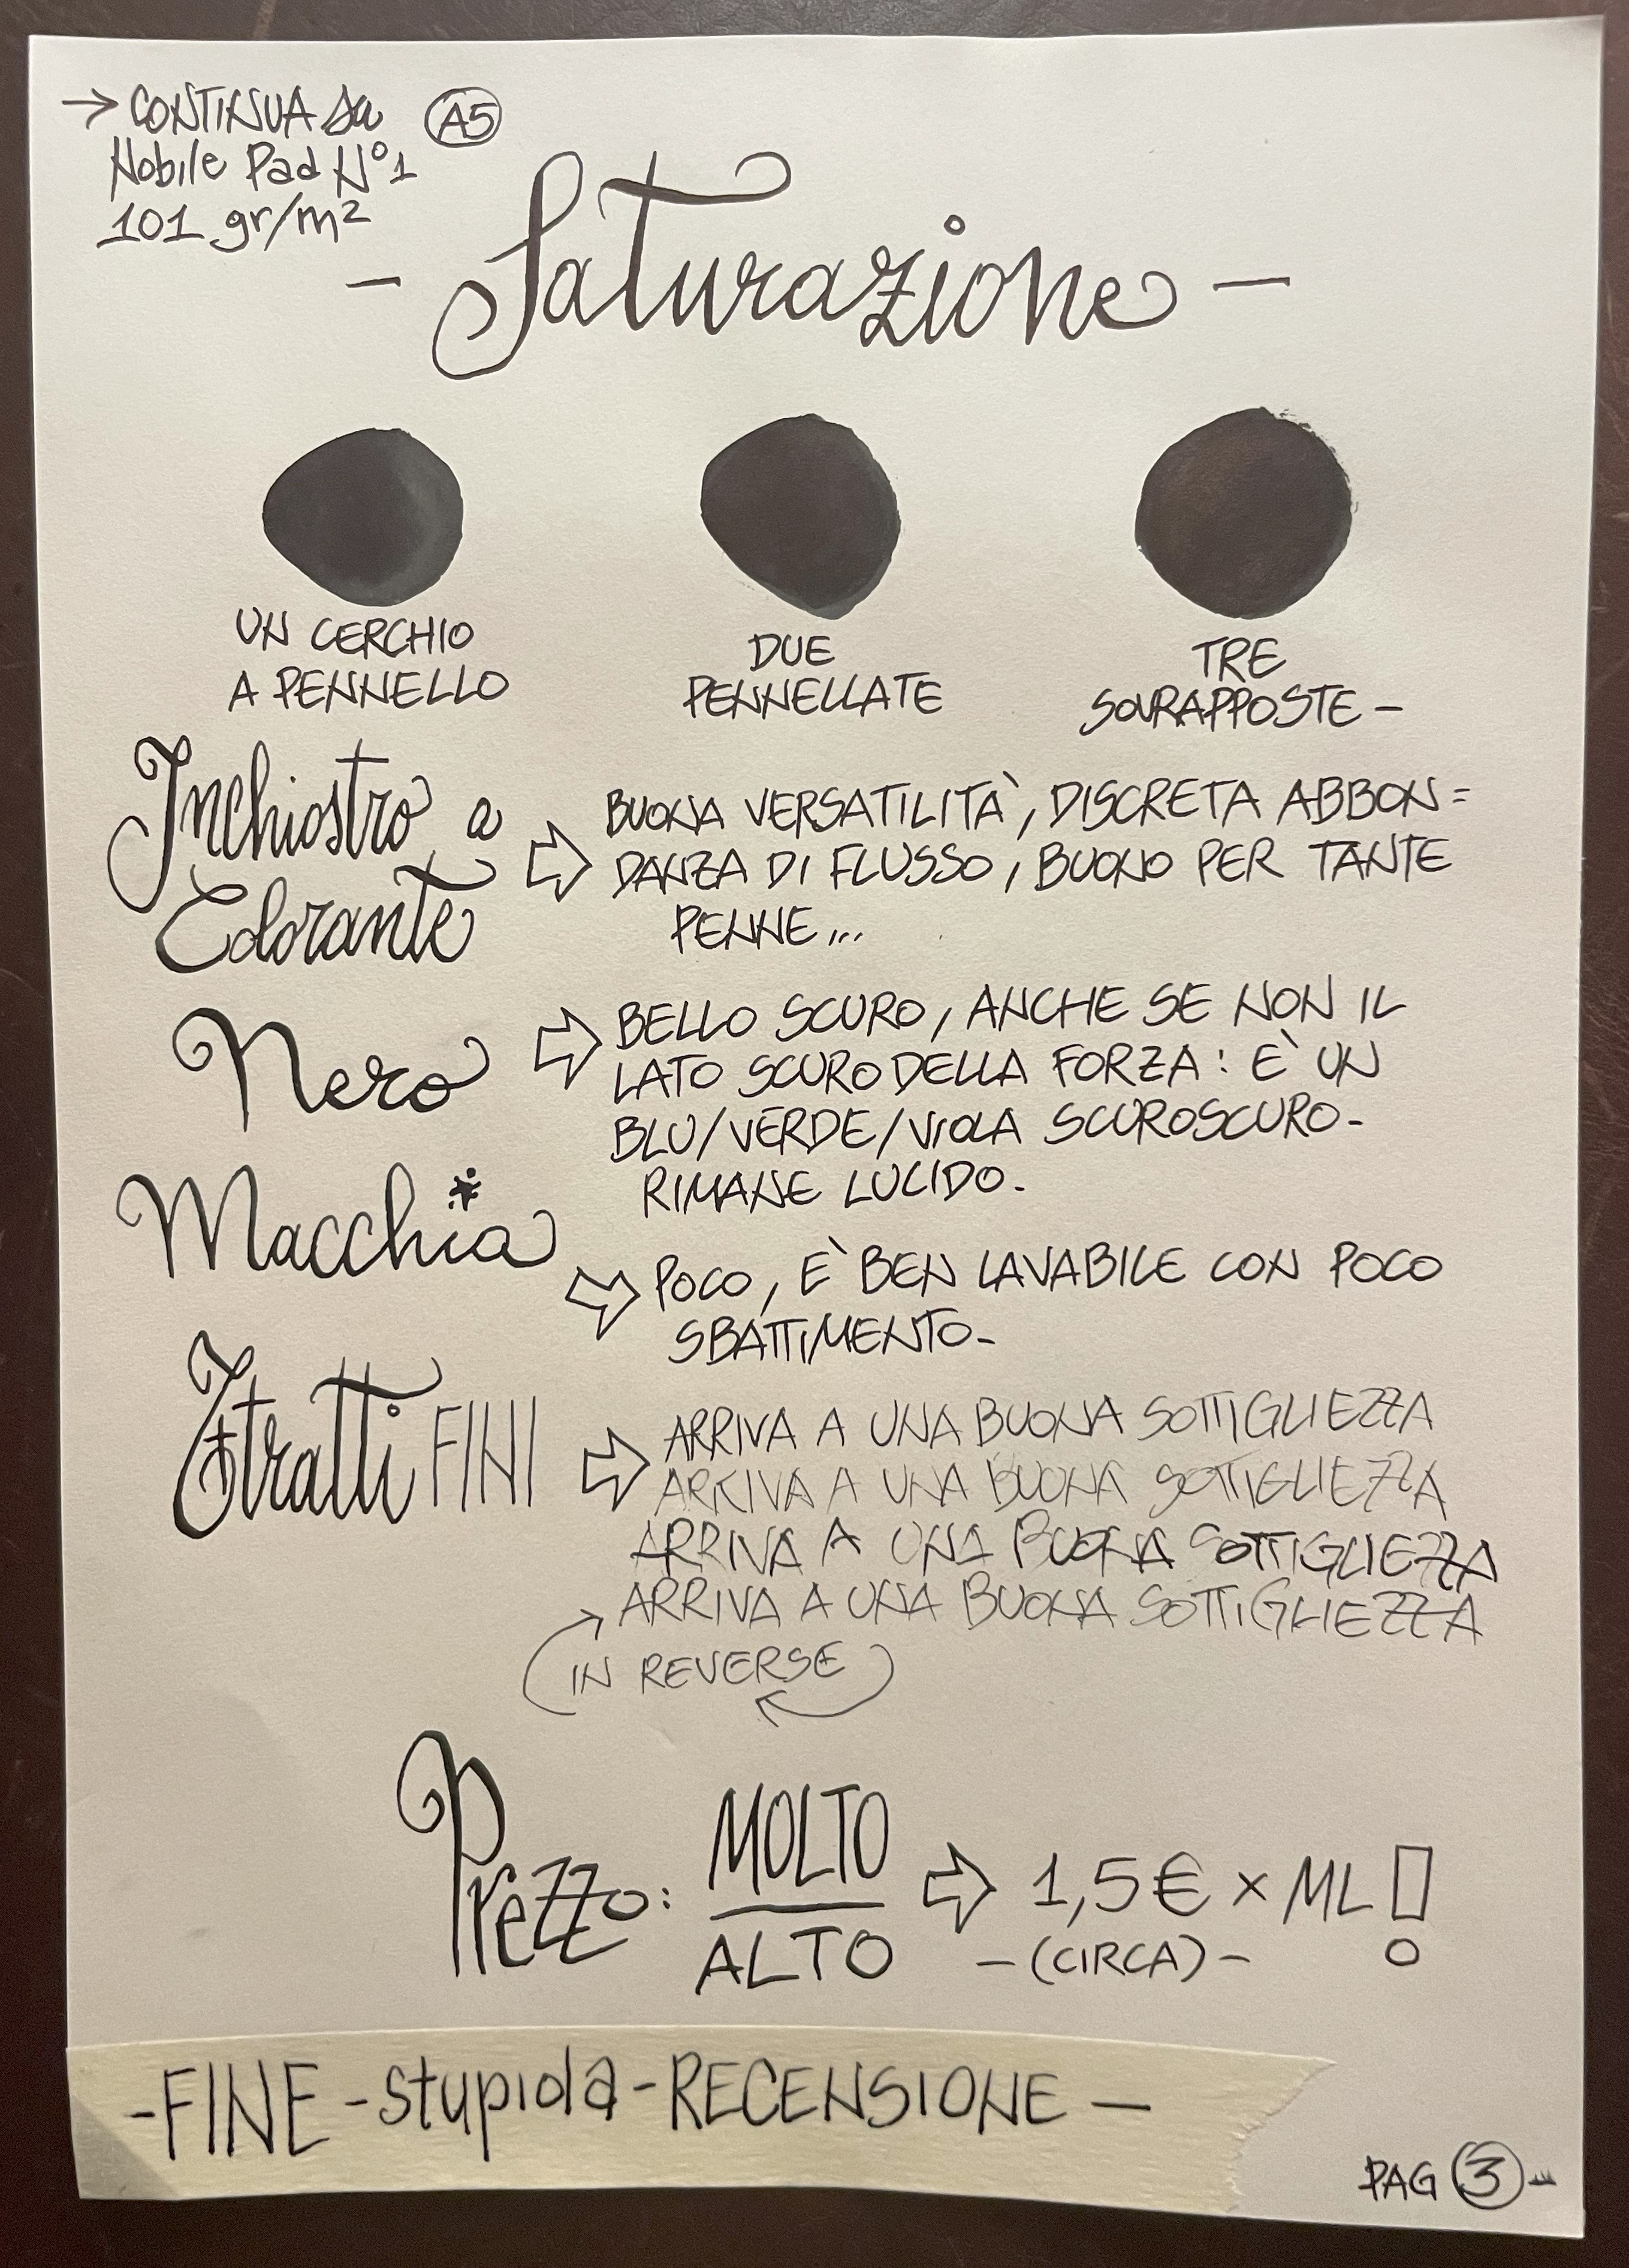 → CONTINUA da A5
Nobile Pad N°1
101 gr/m²
- Saturazione -
UN CERCHIO
A PENNELLO
DUE
PENNELLATE
TRE
SOVRAPPOSTE -
Inchiostro a
Colorante
⇨ BUONA VERSATILITÀ, DISCRETA ABBON=
DANZA DI FLUSSO, BUONO PER TANTE
PENNE...
Nero ⇨ BELLO SCURO, ANCHE SE NON IL
LATO SCURO DELLA FORZA: È UN
BLU/VERDE/VIOLA SCUROSCURO-
RIMANE LUCIDO.
Macchia ⇨ POCO, È BEN LAVABILE CON POCO
SBATTIMENTO-
tratti FINI ⇨ ARRIVA A UNA BUONA SOTTIGLIEZZA
ARRIVA A UNA BUONA SOTTIGLIEZZA
ARRIVA A UNA BUONA SOTTIGLIEZZA
ARRIVA A UNA BUONA SOTTIGLIEZZA
IN REVERSE
Prezzo: MOLTO
ALTO
⇨ 1,5€ x ML!
-(CIRCA)-
-FINE-stupida-RECENSIONE-
PAG 3-